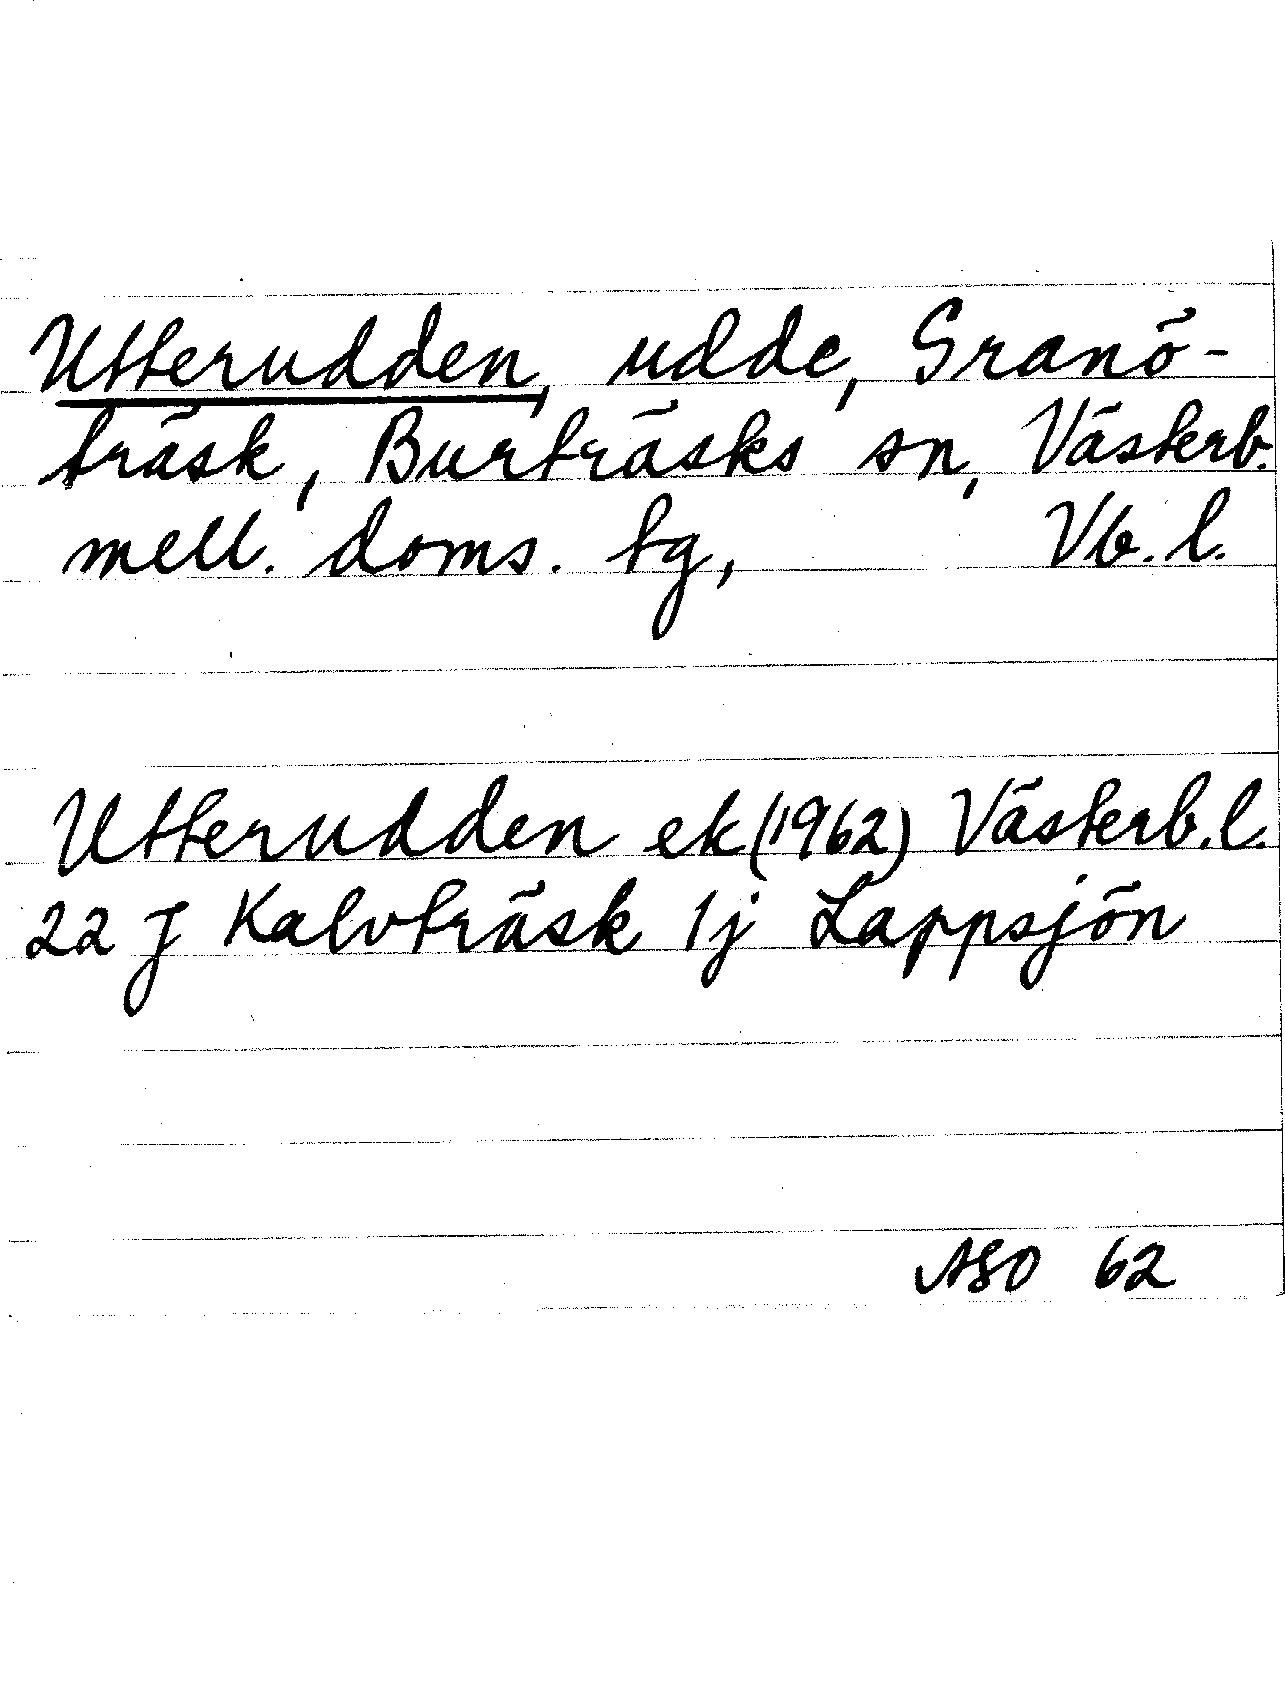 Utterudden, udde, Granö-
träsk, Burträsks sn, Västerb.
mell. doms. tg, Vb. l.
Utterudden ek (1962) Västerb. l.
22 J Kalvträsk 1j Lappsjön
ASO 62